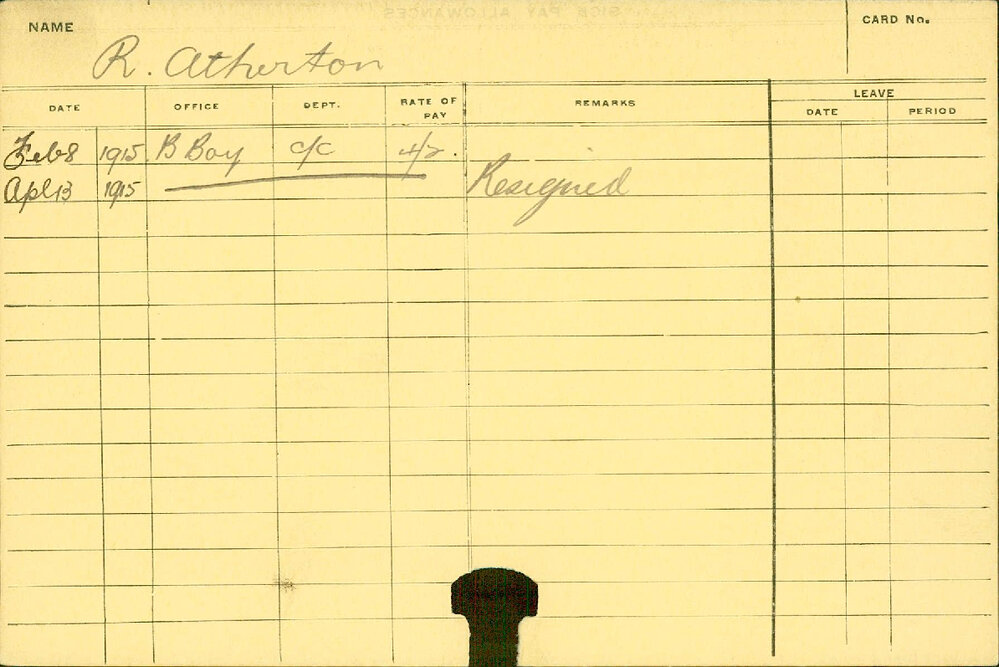 SICK PAY ALLOWANCES
NAME R. Atherton CARD No.
DATE OFFICE DEPT. RATE OF PAY REMARKS LEAVE
DATE PERIOD
Feb 8 1915 B Boy C/C 4/2.
Apl 13 1915 Resigned